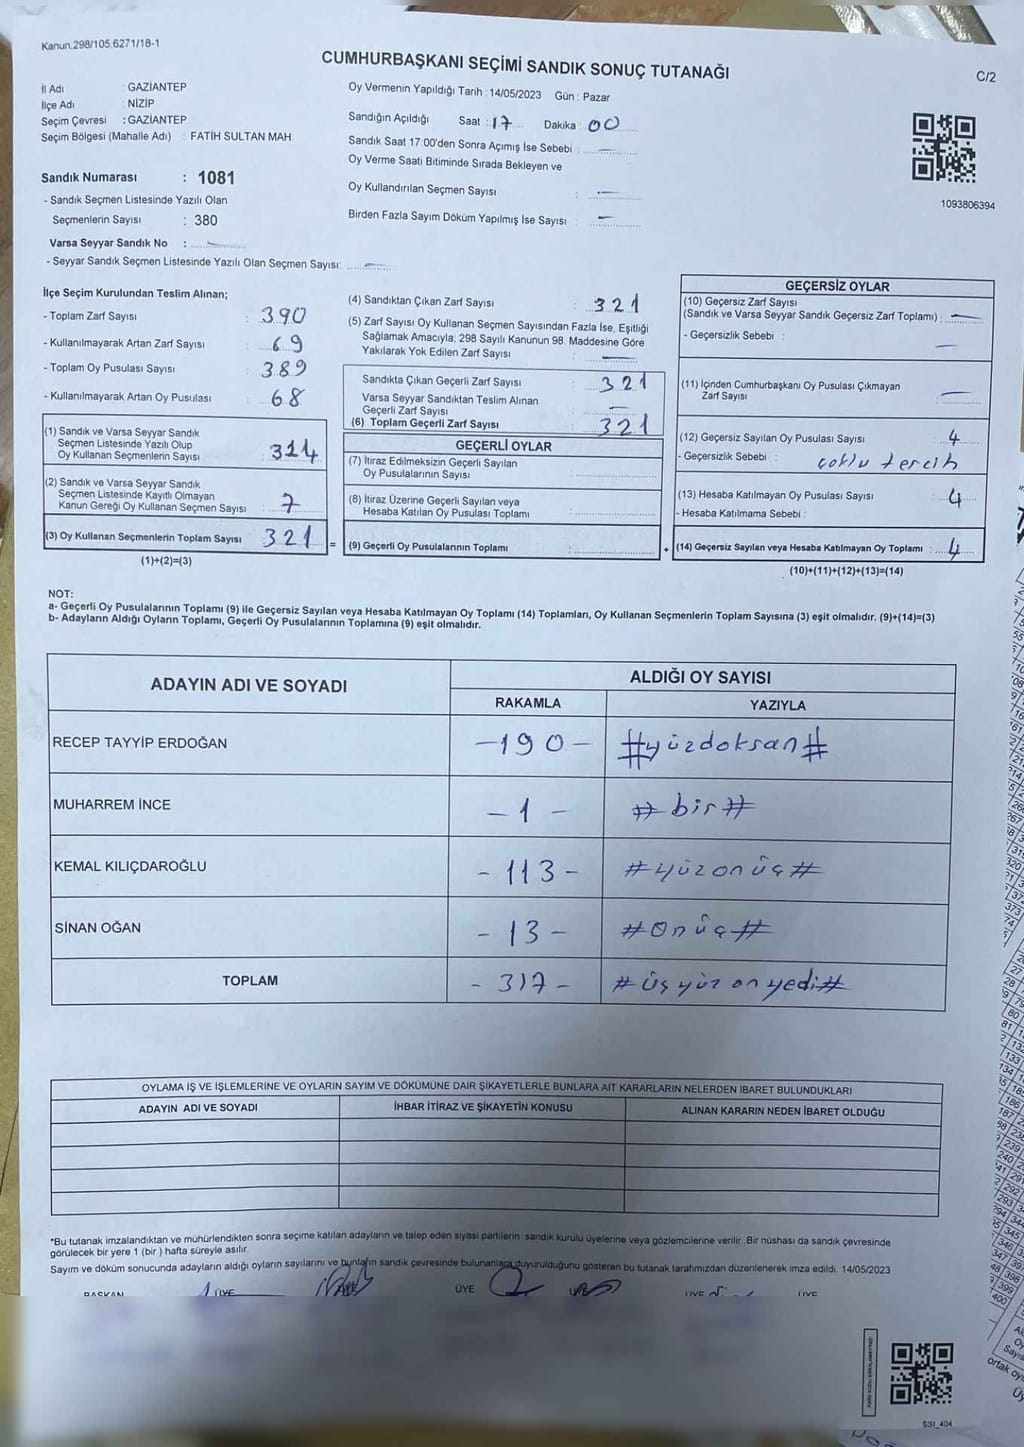 Kanun.298/105.6271/18-1
CUMHURBAŞKANI SEÇİMİ SANDIK SONUÇ TUTANAĞI
C/2
İl Adı : GAZİANTEP
İlçe Adı : NİZİP
Seçim Çevresi : GAZİANTEP
Seçim Bölgesi (Mahalle Adı) : FATİH SULTAN MAH.
Sandık Numarası : 1081
- Sandık Seçmen Listesinde Yazılı Olan
Seçmenlerin Sayısı : 380
Varsa Seyyar Sandık No :
- Seyyar Sandık Seçmen Listesinde Yazılı Olan Seçmen Sayısı:
Oy Vermenin Yapıldığı Tarih : 14/05/2023 Gün : Pazar
Sandığın Açıldığı Saat : 17 Dakika : 00
Sandık Saat 17:00'den Sonra Açımış İse Sebebi :
Oy Verme Saati Bitiminde Sırada Bekleyen ve
Oy Kullandırılan Seçmen Sayısı :
Birden Fazla Sayım Döküm Yapılmış İse Sayısı :
1093806394
İlçe Seçim Kurulundan Teslim Alınan;
- Toplam Zarf Sayısı : 390
- Kullanılmayarak Artan Zarf Sayısı : 69
- Toplam Oy Pusulası Sayısı : 389
- Kullanılmayarak Artan Oy Pusulası : 68
(1) Sandık ve Varsa Seyyar Sandık
Seçmen Listesinde Yazılı Olup
Oy Kullanan Seçmenlerin Sayısı : 314
(2) Sandık ve Varsa Seyyar Sandık
Seçmen Listesinde Kayıtlı Olmayan
Kanun Gereği Oy Kullanan Seçmen Sayısı : 7
(3) Oy Kullanan Seçmenlerin Toplam Sayısı 321
(1)+(2)=(3)
(4) Sandıktan Çıkan Zarf Sayısı : 321
(5) Zarf Sayısı Oy Kullanan Seçmen Sayısından Fazla İse, Eşitliği
Sağlamak Amacıyla; 298 Sayılı Kanunun 98. Maddesine Göre
Yakılarak Yok Edilen Zarf Sayısı :
Sandıkta Çıkan Geçerli Zarf Sayısı : 321
Varsa Seyyar Sandıktan Teslim Alınan
Geçerli Zarf Sayısı :
(6) Toplam Geçerli Zarf Sayısı : 321
GEÇERLİ OYLAR
(7) İtiraz Edilmeksizin Geçerli Sayılan
Oy Pusulalarının Sayısı :
(8) İtiraz Üzerine Geçerli Sayılan veya
Hesaba Katılan Oy Pusulası Toplamı :
= (9) Geçerli Oy Pusulalarının Toplamı :
GEÇERSİZ OYLAR
(10) Geçersiz Zarf Sayısı
(Sandık ve Varsa Seyyar Sandık Geçersiz Zarf Toplamı) :
- Geçersizlik Sebebi :
(11) İçinden Cumhurbaşkanı Oy Pusulası Çıkmayan
Zarf Sayısı :
(12) Geçersiz Sayılan Oy Pusulası Sayısı : 4
- Geçersizlik Sebebi : çoklu tercih
(13) Hesaba Katılmayan Oy Pusulası Sayısı : 4
- Hesaba Katılmama Sebebi :
+ (14) Geçersiz Sayılan veya Hesaba Katılmayan Oy Toplamı : 4
(10)+(11)+(12)+(13)=(14)
NOT:
a- Geçerli Oy Pusulalarının Toplamı (9) ile Geçersiz Sayılan veya Hesaba Katılmayan Oy Toplamı (14) Toplamları, Oy Kullanan Seçmenlerin Toplam Sayısına (3) eşit olmalıdır. (9)+(14)=(3)
b- Adayların Aldığı Oyların Toplamı, Geçerli Oy Pusulalarının Toplamına (9) eşit olmalıdır.
ADAYIN ADI VE SOYADI ALDIĞI OY SAYISI
RAKAMLA YAZIYLA
RECEP TAYYİP ERDOĞAN -190- #yüzdoksan#
MUHARREM İNCE -1- #bir#
KEMAL KILIÇDAROĞLU -113- #yüzonüç#
SİNAN OĞAN -13- #onüç#
TOPLAM -317- #üçyüz onyedi#
OYLAMA İŞ VE İŞLEMLERİNE VE OYLARIN SAYIM VE DÖKÜMÜNE DAİR ŞİKAYETLERLE BUNLARA AİT KARARLARIN NELERDEN İBARET BULUNDUKLARI
ADAYIN ADI VE SOYADI İHBAR İTİRAZ VE ŞİKAYETİN KONUSU ALINAN KARARIN NEDEN İBARET OLDUĞU
*Bu tutanak imzalandıktan ve mühürlendikten sonra seçime katılan adayların ve talep eden siyasi partilerin sandık kurulu üyelerine veya gözlemcilerine verilir. Bir nüshası da sandık çevresinde
görülecek bir yere 1 (bir) hafta süreyle asılır.
Sayım ve döküm sonucunda adayların aldığı oyların sayılarını ve bunların sandık çevresinde bulunanlara duyurulduğunu gösteren bu tutanak tarafımızdan düzenlenerek imza edildi. 14/05/2023
BAŞKAN ÜYE ÜYE ÜYE ÜYE
SSI_404